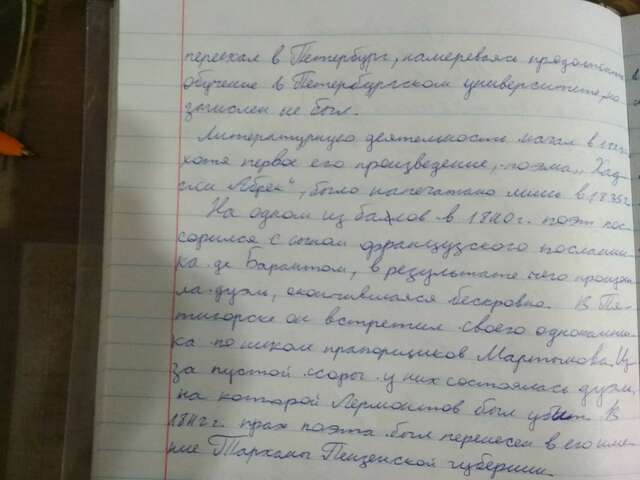 переехал в Петербург, намереваясь продолжить
обучение в Петербургском университете, но
зачислен не был.
Литературную деятельность начал в
хотя первое его произведение, поэма „Хад-
жи Абрек", было напечатано лишь в 1835г.
На одном из балов в 1840г. поэт пос-
сорился с сыном французского посланни-
ка де Барантом, в результате чего произош-
ла дуэль, окончившаяся бескровно. В Пя-
тигорске он встретил своего однокашни-
ка по школе прапорщиков Мартынова. Из-
за пустой ссоры у них состоялась дуэль,
на которой Лермонтов был убит. В
1842г. прах поэта был перенесен в его име-
ние Тарханы Пензенской губернии.